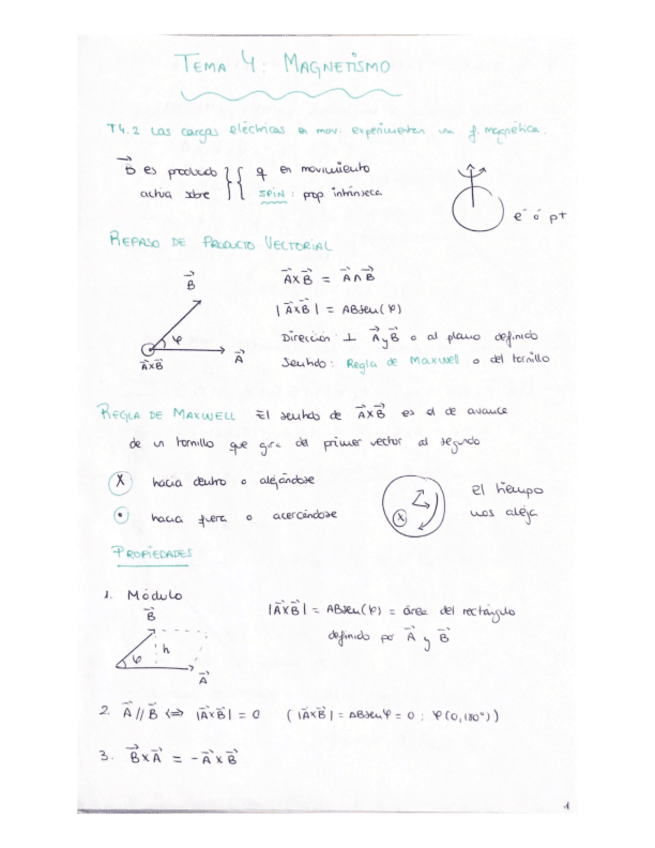 TEMA 4: MAGNETISMO
T4.2 Las cargas eléctricas en mov. experimentan un f. magnética.
B⃗ es producido } { q en movimiento
actúa sobre } { SPIN: prop intrínseca
e⁻ ó p+
REPASO DE PRODUCTO VECTORIAL
B⃗
φ
A⃗
A⃗xB⃗
A⃗xB⃗ = A⃗∧B⃗
|A⃗xB⃗| = ABsen(φ)
Dirección: ⊥ A⃗ y B⃗ o al plano definido
Sentido: Regla de Maxwell o del tornillo
REGLA DE MAXWELL El sentido de A⃗xB⃗ es el de avance
de un tornillo que gira del primer vector al segundo
X hacia dentro o alejándose
• hacia fuera o acercándose
X
El tiempo
nos aleja
PROPIEDADES
1. Módulo
B⃗
φ h
A⃗
|A⃗xB⃗| = ABsen(φ) = área del rectángulo
definido por A⃗ y B⃗
2. A⃗//B⃗ <=> |A⃗xB⃗| = 0 (|A⃗xB⃗| = ABsenφ = 0 ; φ(0,180°))
3. B⃗xA⃗ = -A⃗xB⃗
1